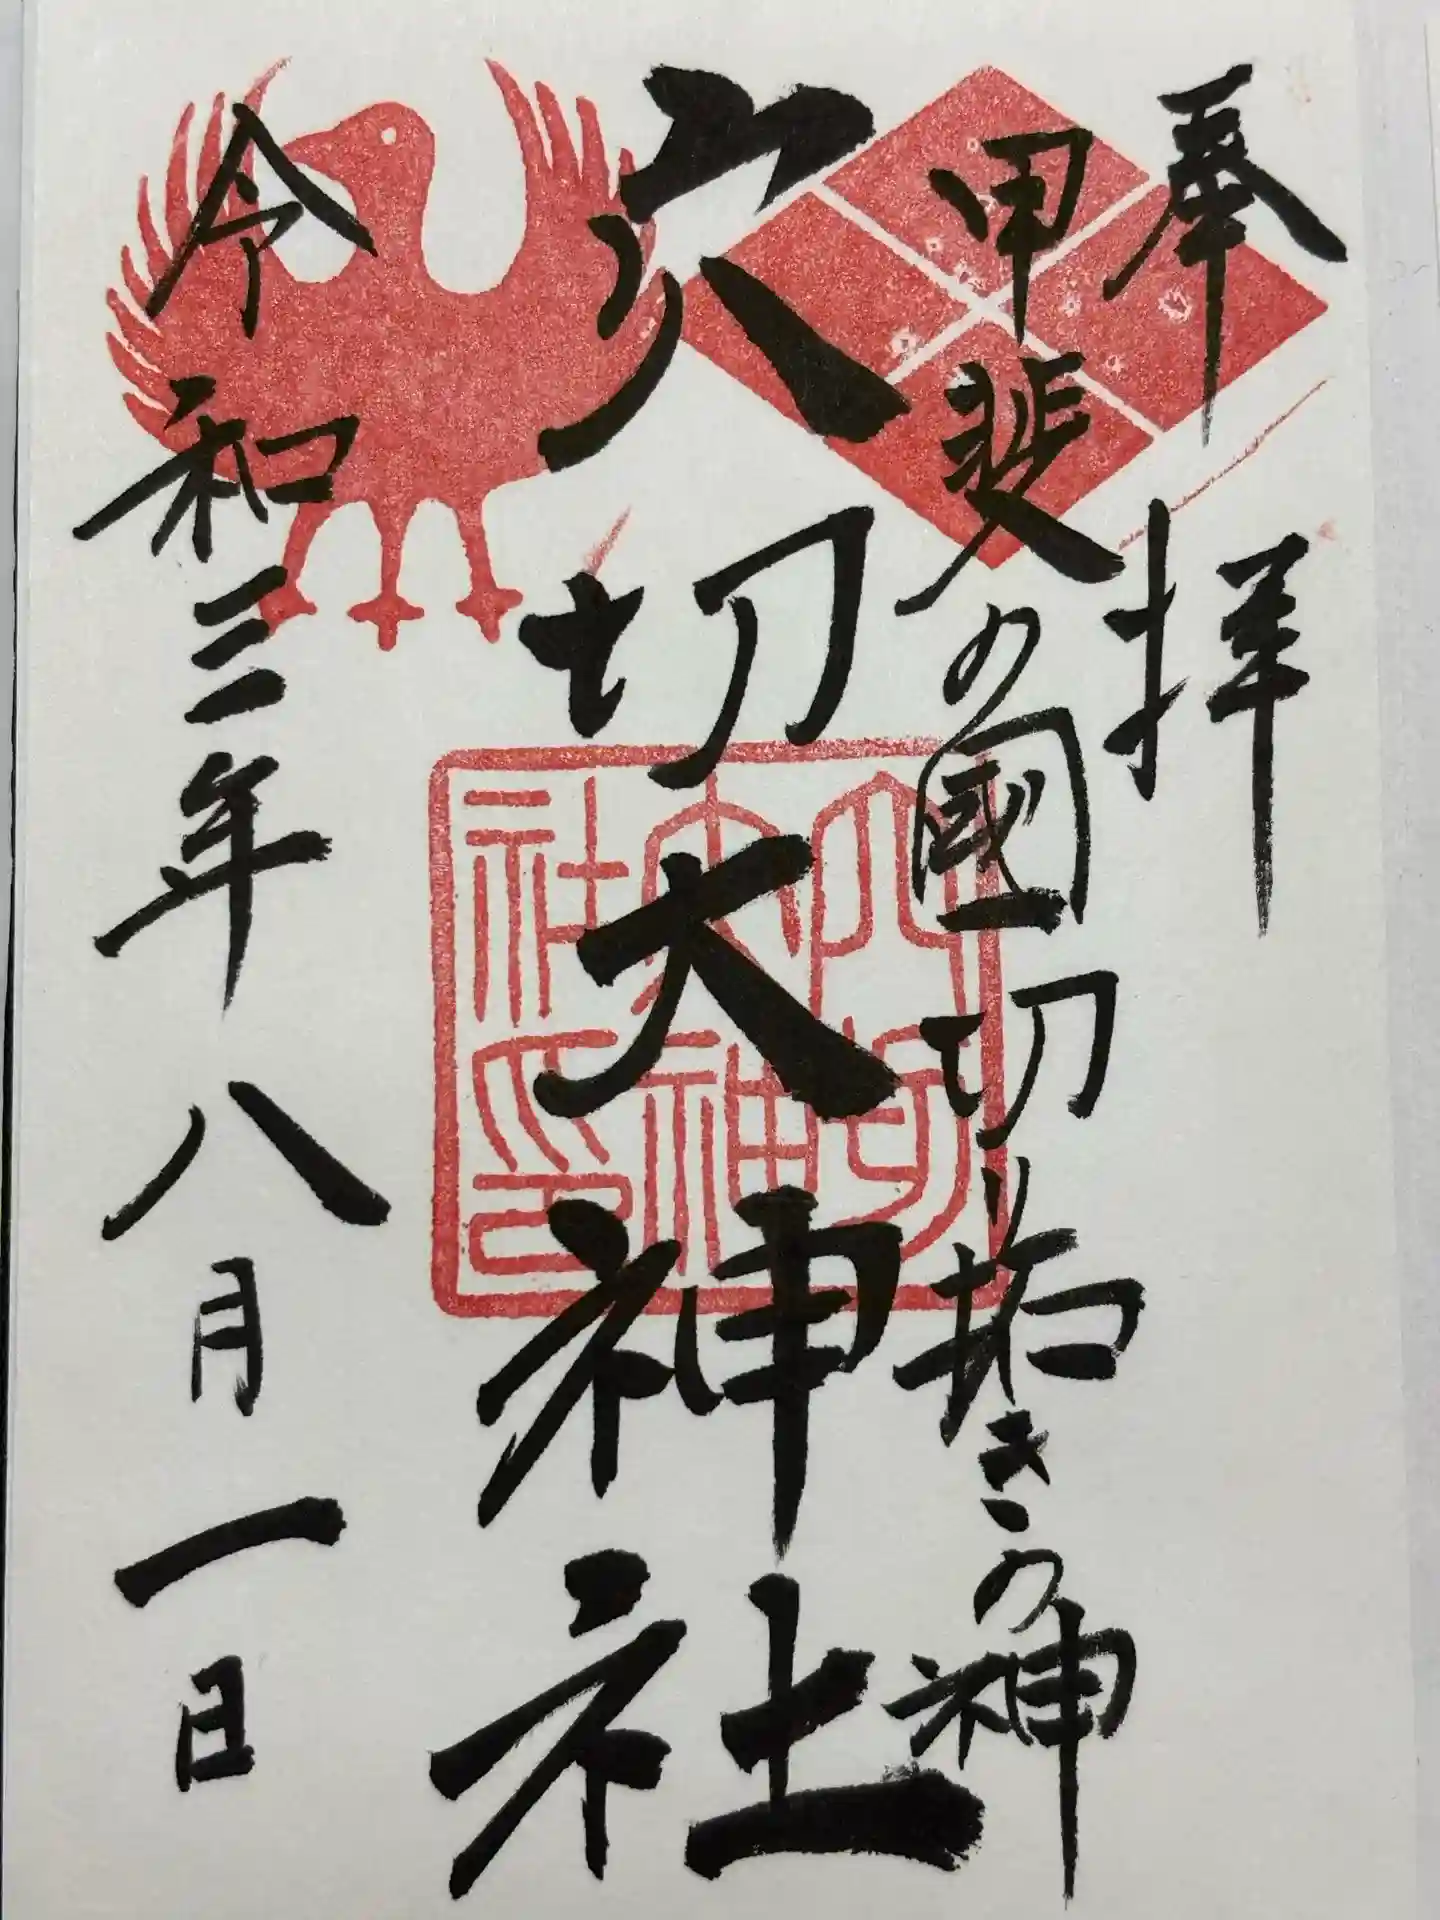 奉拝
甲斐の國切り拓きの神
穴切大神社
令和三年八月一日
穴切
大神
社印